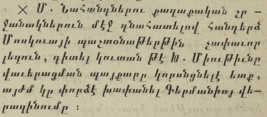 × Մ. Նահանգներու քաղաքական շր-
ջանակներուն մէջ գնահատելով հանդերձ
Մոսկուայի պաշտօնաթերթին չափաւոր
լեզուն, դիտել կուտան թէ Խ. Միութիւնը
վաւերացման պայքարը կորսնցնելէ ետք,
այժմ կը փորձէ խափանել Գերմանիոյ վե-
րազինումը :